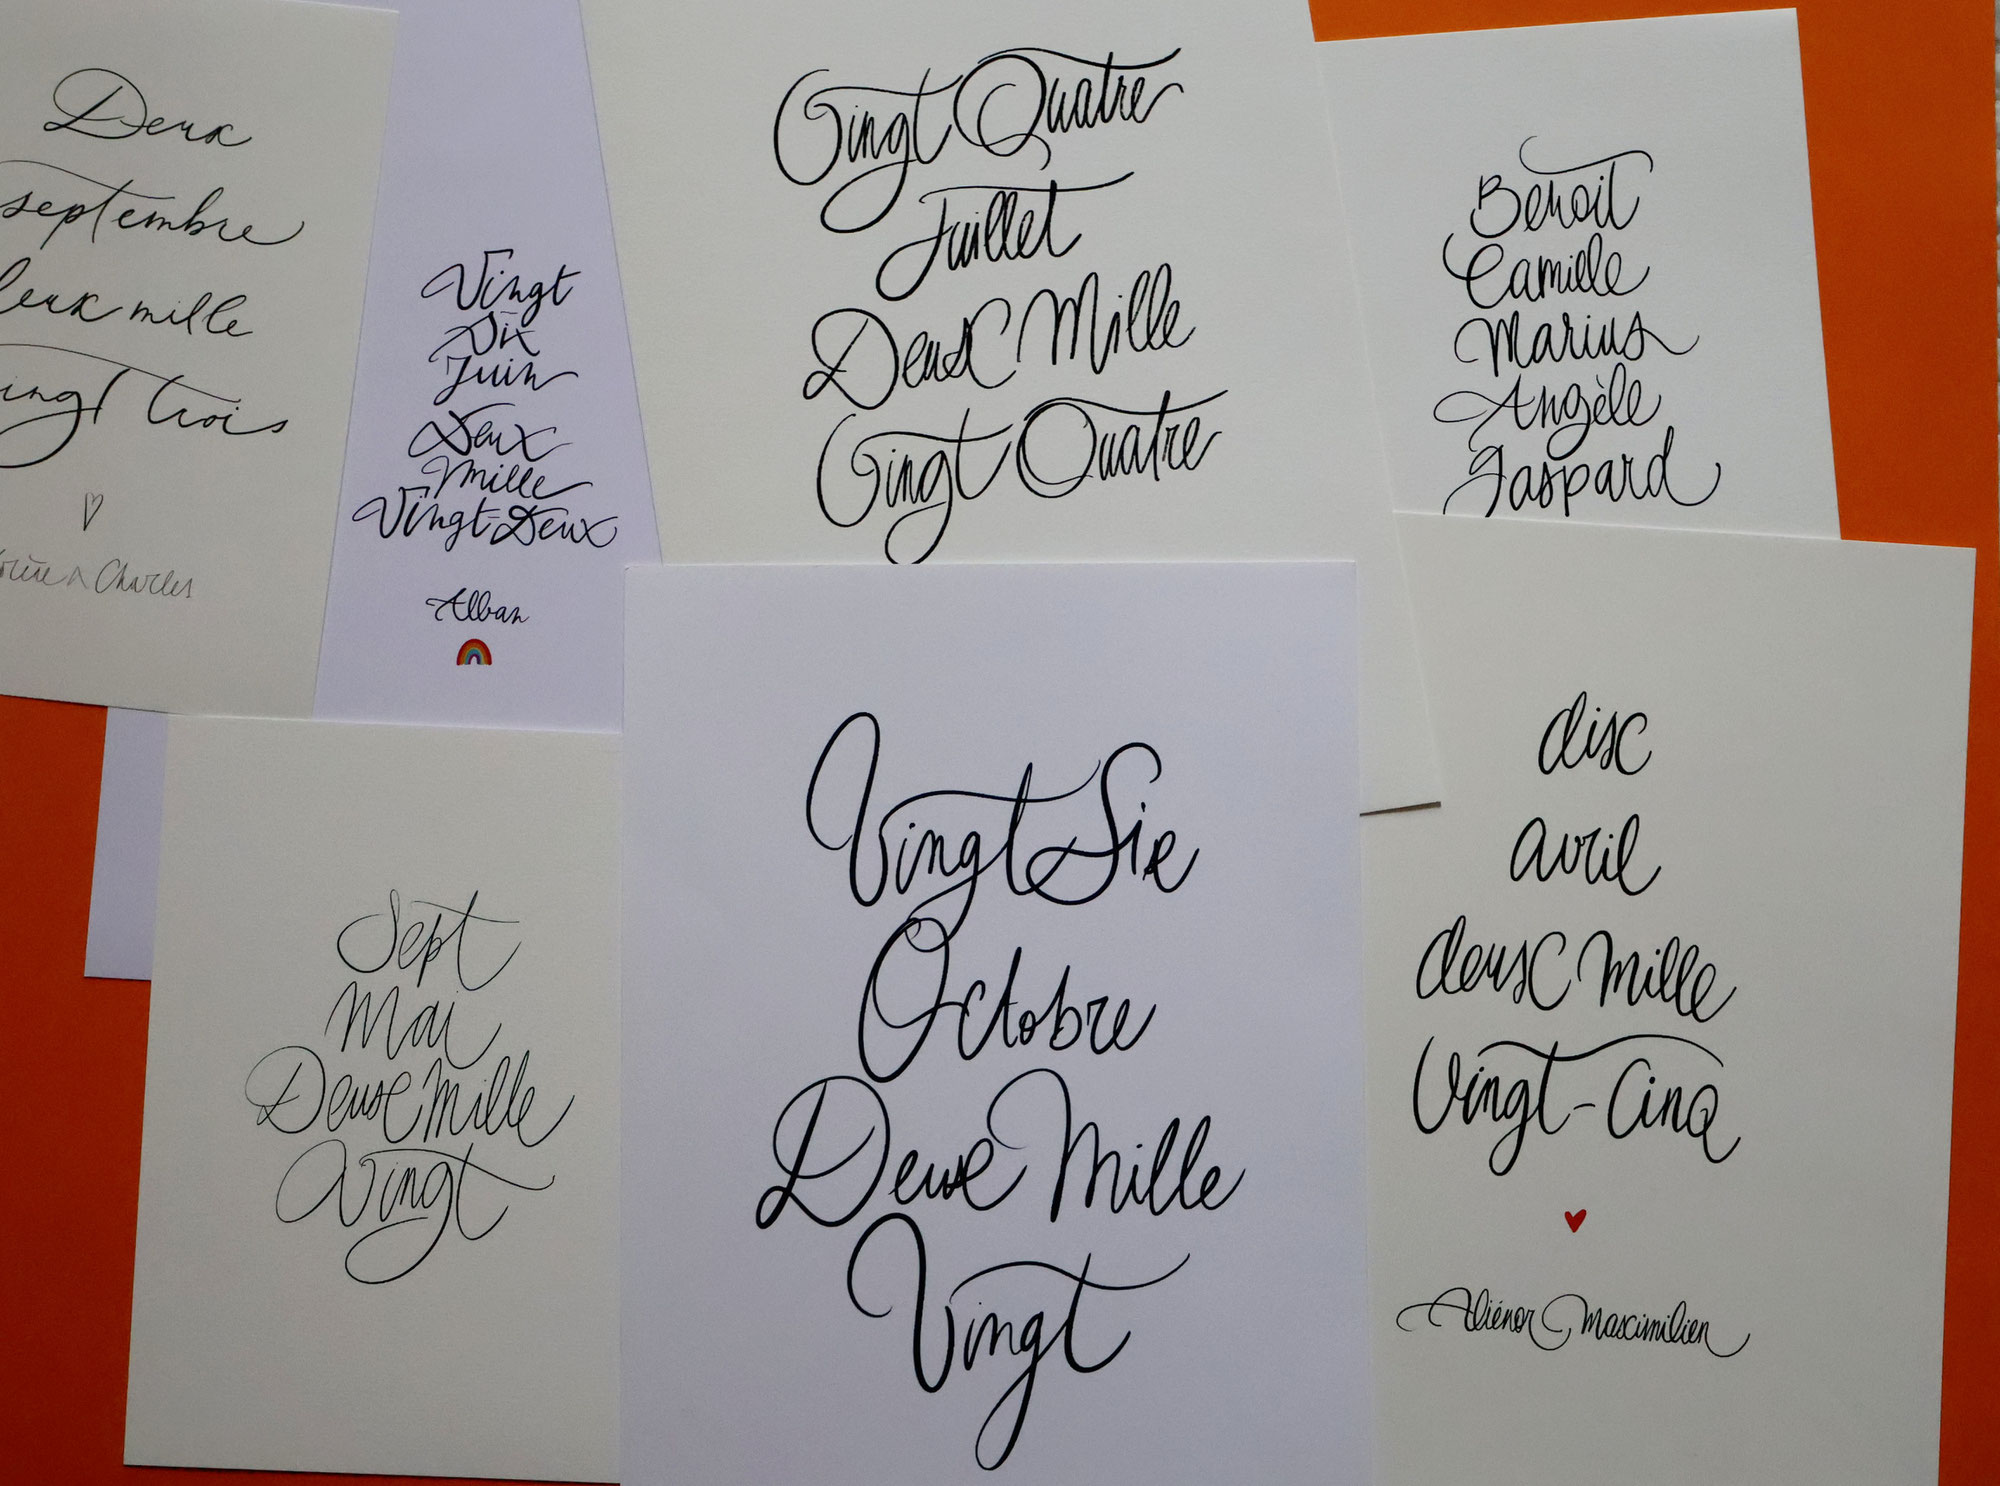 Deux
septembre
deux mille
ingt trois
Charles
Vingt
Six
Juin
Deux
Mille
Vingt-Deux
Alban
Vingt Quatre
Juillet
Deux Mille
Vingt Quatre
Benoit
Camille
Marius
Angèle
Gaspard
Sept
Mai
Deux Mille
Vingt
Vingt Six
Octobre
Deux Mille
Vingt
dix
avril
deux mille
Vingt-Cinq
Aliénor Maximilien